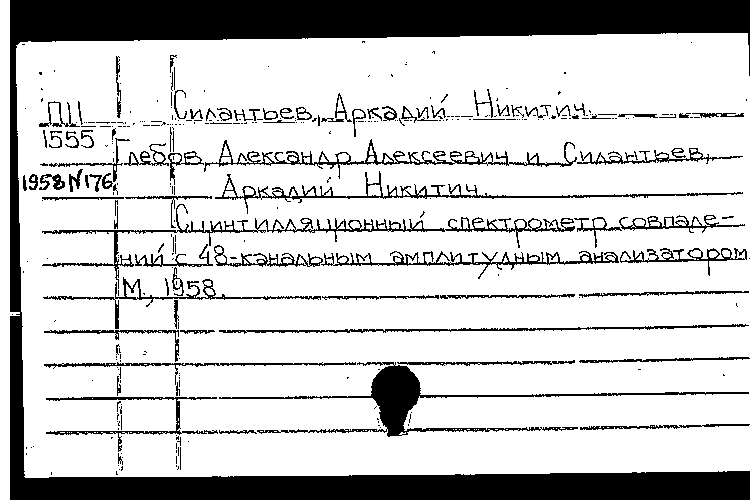 П11 Силантьев, Аркадий Никитич.
1555
Глебов, Александр Алексеевич и Силантьев,
1958 N176 Аркадий Никитич.
Сцинтилляционный спектрометр совпаде-
ний с 48-канальным амплитудным анализатором
М., 1958.